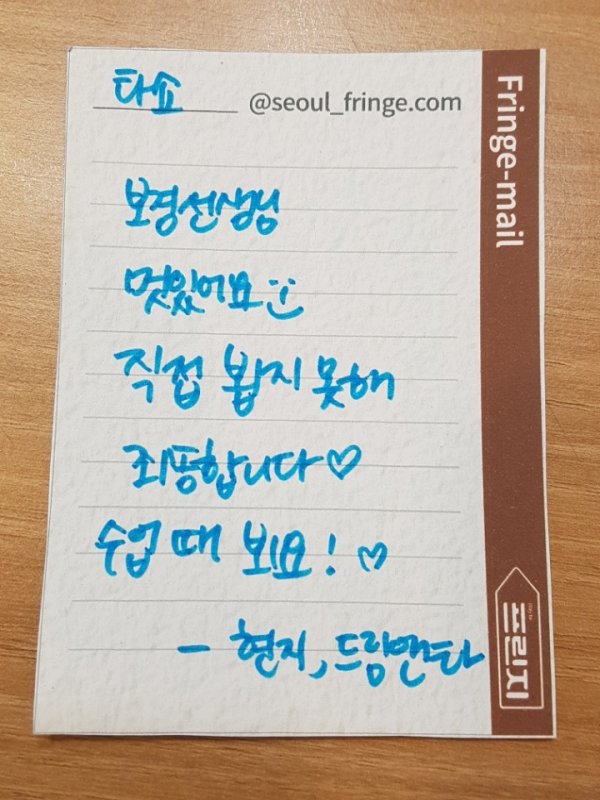 타쇼 @seoul_fringe.com
Fringe-mail
보경선생님
멋있어요
직접 뵙지 못해
죄송합니다♡
수업 때 뵈요! ♡
- 현지, 드림앤타
프린지